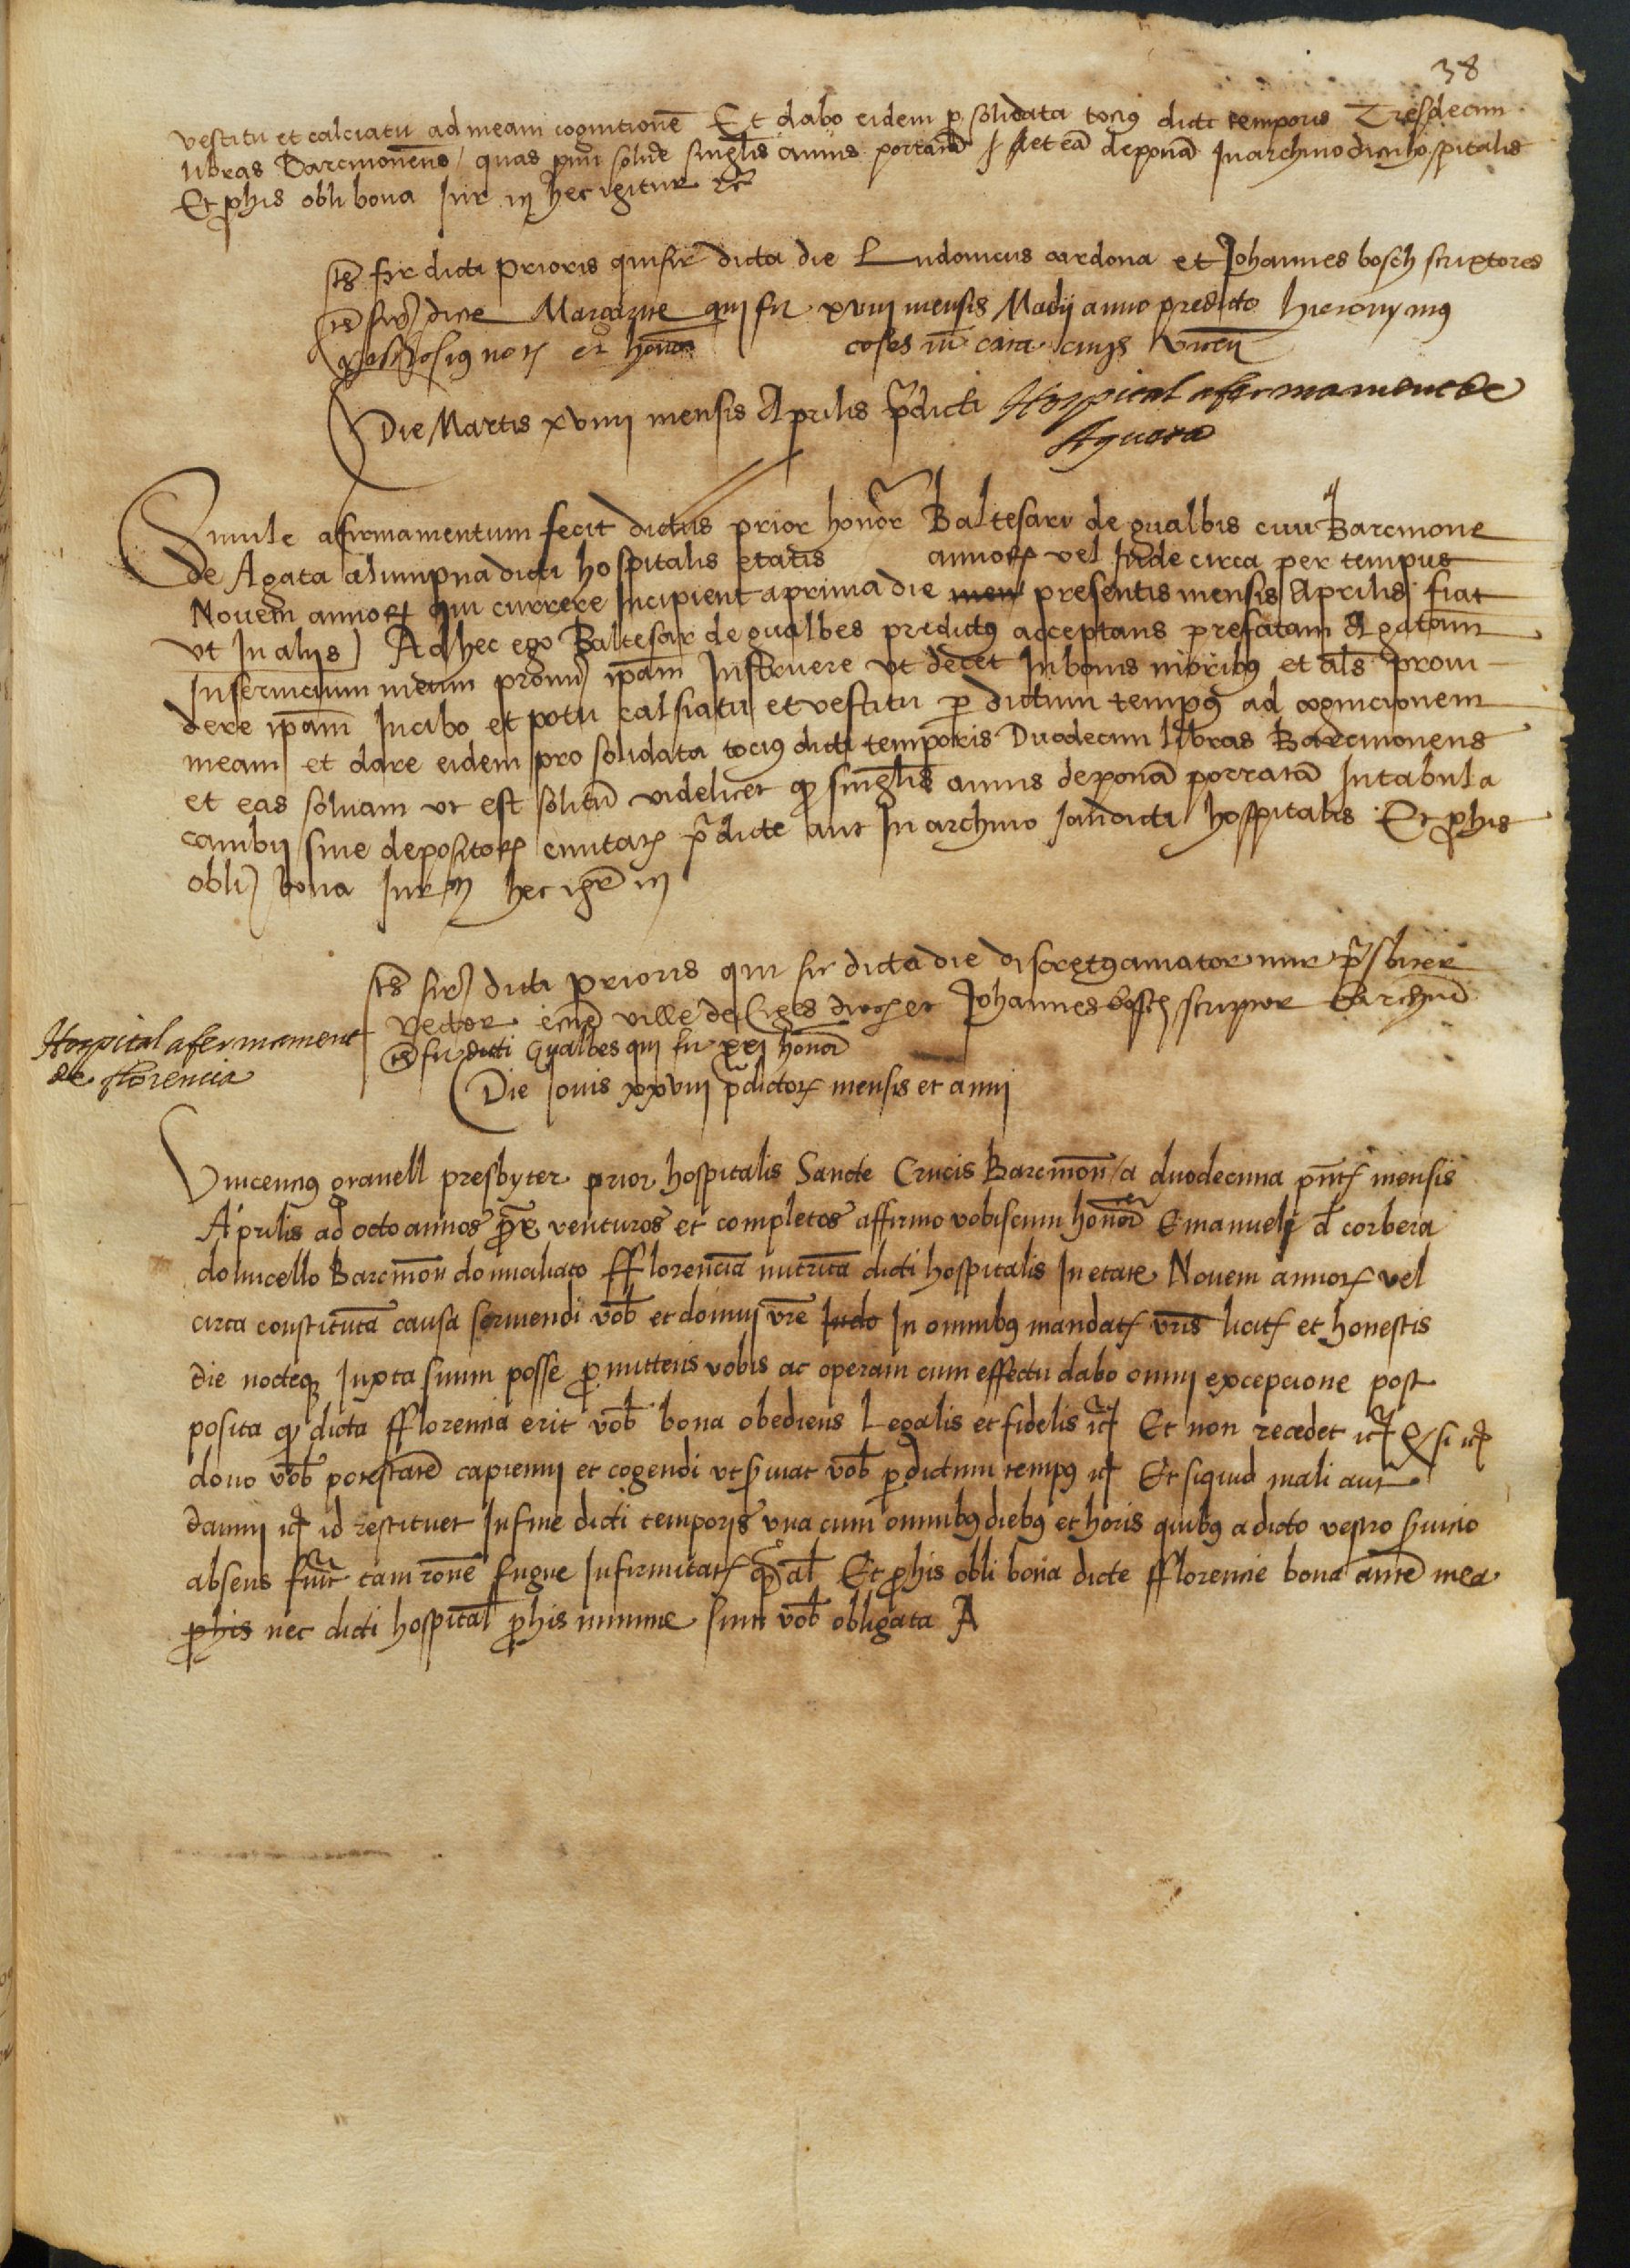 38
vestitu et calciatu ad meam cognitionē Et dabo eidem p solidata tociꝰ dicti temporis Tresdecim
libras Barcinonens̄ / quas ꝓmi solue singl̄is annis porratā et eā deponā In archiuo dicti hospitalis
Et ꝓhis obli bona Iur hec igitur etc̄
tes̄ fir dicti prioris qui fir dicta die Ludouicus cardona et Johannes bosch scriptores
tes̄ fir dicte qui fir xviii mensis Madii anno predicto hieronymꝰ
noꝝ et honor
Die Martis xviiii mensis Aprilis p̄dicti
Hospital afermament de
Agueta
Simile afirmamentum fecit dictus prior honor̄ Baltesari de gualbis ciui Barcinone
de Agata alumpna dicti hospitalis etatis annoꝝ vel Inde circa per tempus
Nouem annoꝝ qui currere Incipient a prima die men presentis mensis Aprilis fiat
vt In aliis) Ad hec ego Baltesar de gualbes predictꝰ acceptans prefatam Agatam
In seruicium meum promi) ip̄am Instruere vt decet In bonis moribꝰ et al̄s proui
dere ip̄am In cibo et potu calsiatu et vestitu p dictum tempꝰ ad cognicionem
meam et dare eidem pro solidata tociꝰ dicti temporis Duodecim libras Barcinonens
et eas soluam vt est solitū videlicet ꝙ singl̄is annis deponā porratā In tabula
cambii siue depositoꝝ ciuitatꝭ p̄dicte aut In archiuo Iamdicti hospitalis Et ꝓhis
obli) bona Iur hec igr̄
tes̄ fir) dicti prioris qui fir dicta die discretꝰ amator mir p̄sbiter
Rector ecc̄e ville de Siges dioc̄ et Johannes bosch scriptor Barchn̄
tes̄ fir dicti Gualbes qui fir xxi honor̄
Hospital afermament
de florencia
Die Iouis xxviii p̄dictoꝝ mensis et anni
Vincenciꝰ grauell presbyter prior hospitalis Sancte Crucis Barcinon̄ / a duodecima pn̄tꝭ mensis
Aprilis ad octo annos ꝓx̄e venturos et completos affirmo vobiscum honor̄ Emanueli d̄ corbera
domicello Barcinon̄ domiciliato fflorenciā nutritā dicti hospitalis In etate Nouem annoꝝ vel
circa constitutā causa seruiendi vob̄ et domui vr̄e Indo In omnibꝰ mandatꝭ vr̄is licitꝭ et honestis
die nocteqꝫ Iuxta suum posse ꝓmittens vobis ac operam cum effectu dabo omni excepcione post
posita ꝙ dicta fflorencia erit vob̄ bona obediens Legalis et fidelis Et non recedet
dono vob̄ potestatē capiendi et cogendi vt seruiat vob̄ p dictum tempꝰ Et si quid mali aut
damni id restituet In fine dicti temporis vna cum omnibꝰ diebꝰ et horis quibꝰ a dicto vestro seruicio
absens fuit tam rōne fugue Infirmitatꝭ q̄ al̄ Et ꝓhis obli bona dicte fflorencie bona autē mea
ꝓhis nec dicti hospital̄ ꝓhis minime sint vob̄ obligata A